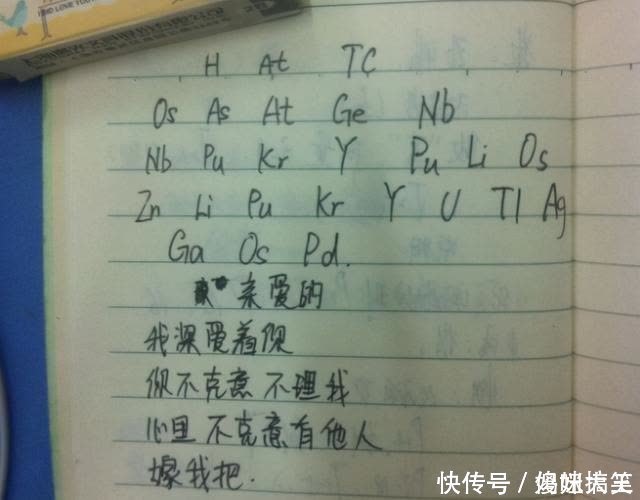 FIND LOVE YOU
H At TC
Os As At Ge Nb
Nb Pu Kr Y Pu Li Os
Zn Li Pu Kr Y U Tl Ag
Ga Os Pd.
亲爱的
我深爱着你
你不克意不理我
心里不克意有他人
嫁我把.
快传号 / 搞笑